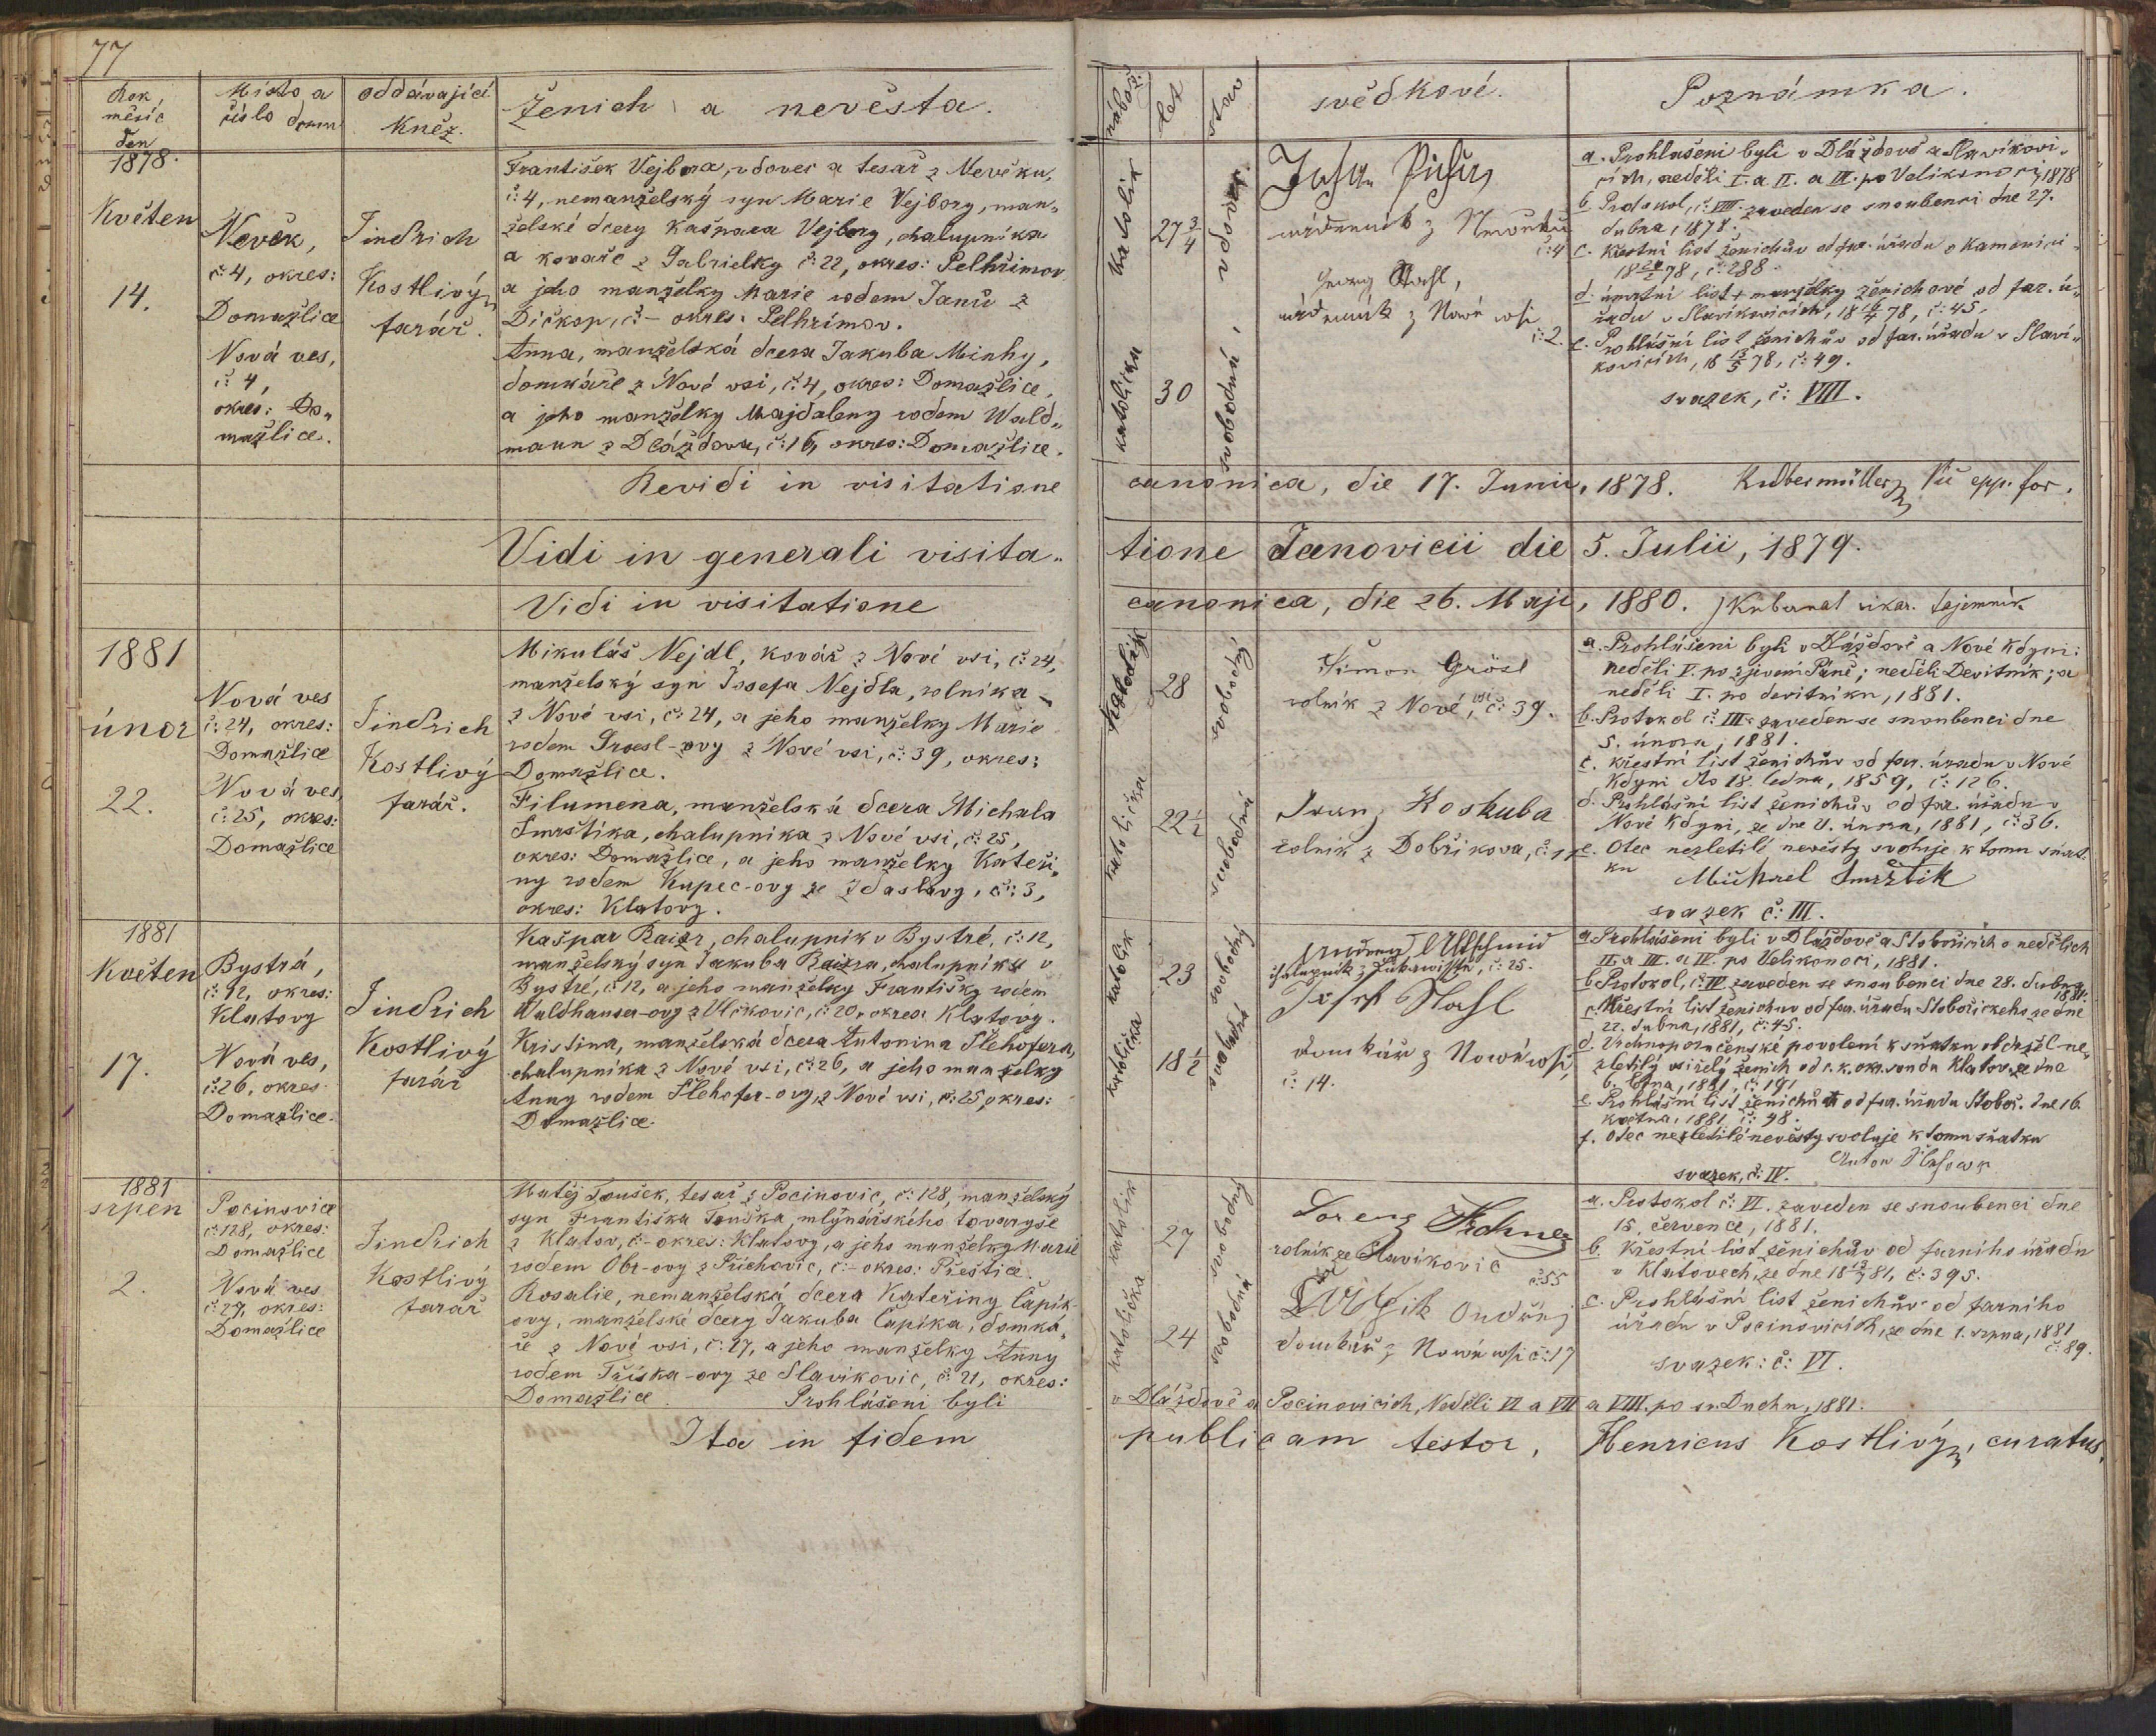 77
Rok, měsíc den
Místo a číslo domu
oddávající kněz.
Ženich a nevěsta.
nábož.
let
stav
svědkové.
Poznámka.
1878.
Květen
14.
Nevěk,
č: 4, okres:
Domažlice
Nová ves,
č: 4,
okres: Do„
mažlice.
Jindřich
Kostlivý,
farář.
František Vejbora, vdovec a tesař z Nevěku,
č: 4, nemanželský syn Marie Vejbory, man„
želské dcery Kašpara Vejbory, chalupníka
a kováře z Gabrielky č: 22, okres: Pelhřimov
a jeho manželky Marie rodem Janů z
Dičkop, č:- okres: Pelhřimov.
Anna, manželská dcera Jakuba Minhy,
domkáře z Nové vsi, č: 4, okres: Domažlice,
a jeho manželky Majdaleny rodem Wald„
mann z Dlážďova, č: 16, okres: Domažlice.
katolík
27 3/4
vdovec.
katolička
30
svobodná
z
č: 4
Georg Stahl,
z Nowé wsi
č: 2.
a. Prohlášeni byli v Dlážďově a Slavíkovi„
cích, neděli I. a II. a III. po Velikonoci, 1878
b. Protokol, č: VIII. zaveden se snoubenci dne 27.
dubna, 1878.
c. Křestní list ženichův od far. úřadu v Kamenici
d. úmrtní list manželky ženichové od far. ú„
řadu v Slavíkovicích, 18 16/4 78, č: 45.
e. Prohlášní list ženichův od far. úřadu v Slaví„
kovicích, 18 13/5 78, č: 49.
svazek, č: VIII.
Revidi in visitatione canonica, die 17. Junii, 1878.
Vidi in generali visita„ tione Janovicii die 5. Julii, 1879.
Vidi in visitatione canonica, die 26. Maji, 1880. vikar. tajemník
1881
únor
22.
Nová ves
č: 24, okres:
Domažlice
Nová ves,
č: 25, okres:
Domažlice
Jindřich
Kostlivý
farář.
Mikuláš Nejdl, kovář z Nové vsi, č: 24,
manželský syn Josefa Nejdla, rolníka
z Nové vsi, č: 24, a jeho manželky Marie
rodem Groesl-ovy z Nové vsi, č: 39, okres:
Domažlice.
Filumena, manželská dcera Michala
Smrštíka, chalupníka z Nové vsi, č: 25,
okres: Domažlice, a jeho manželky Kateři„
ny rodem Kupec-ovy ze Zdaslavy, č: 3,
okres: Klatovy.
katolík
28
svobodný
katolička
22 1/2
svobodná
Šimon Grösl
rolník z Nové vsi č: 39.
Koskuba
rolník z Dobříkova, č:
a. Prohlášeni byli v Dlážďově a Nové Kdyni:
neděli V. po zjevení Páně; neděli Devítník; a
neděli I. po devítníku, 1881.
b. Protokol č: III. zaveden se snoubenci dne
5. února, 1881.
c. křestní list ženichův od far. úřadu v Nové
Kdyni dto 18. ledna, 1859, č: 126.
d. Prohlášní list ženichův od far. úřadu v
Nové Kdyni, ze dne 21. února, 1881, č: 36.
e. Otec nezletilé nevěsty svoluje k tomu sňat„
ku
Michael Smržtik
svazek č: III.
1881
Květen
17.
Bystrá,
č: 12, okres:
Klatovy
Nová ves,
č: 26, okres
Domažlice.
Jindřich
Kostlivý
farář
Kašpar Raizr, chalupník v Bystré, č: 12,
manželský syn Jakuba Raizra, chalupníka v
Bystré, č: 12, a jeho manželky Františky rodem
Waldhausa-ovy z Vlčkovic, č: 20, okres Klatovy.
Kristina, manželská dcera Antonína Šlehofera,
chalupníka z Nové vsi, č: 26, a jeho manželky
Anny rodem Šlehofer-ovy, z Nové vsi, č: 25, okres:
Domažlice.
katolík
23
svobodný
katolička
18 1/2
svobodná
Altschmid
chalupník z č: 25.
Josef Stahl
domkář z Nowé wsi,
č: 14.
a. Prohlášeni byli v Dlážďově a Stobořicích v nedělích
II. a III. a IV. po Velikonoci, 1881.
b. Protokol, č: IV. zaveden se snoubenci dne 28. dubna
1881.
c. Křestní list ženichův od far. úřadu Stobořického ze dne
22. dubna, 1881, č: 45.
d. Vrchnoporučenské povolení k sňatku obdržel ne„
zletilý ženich od c. k. okr. soudu Klatov. ze dne
1881, č: 191
e. Prohlášní list ženichův od far. úřadu Stoboř. dne 16.
května, 1881, č: 48.
f. Otec nezletilé nevěsty svoluje k tomu sňatku
Anton
svazek, č: IV.
1881
srpen
2.
Pocinovice
č: 128, okres:
Domažlice
Nová ves
č: 27, okres:
Domažlice
Jindřich
Kostlivý
farář
Matěj Toušek, tesař z Pocinovic, č: 128, manželský
syn Františka Touška, mlýnářského tovaryše
z Klatov, č:- okres: Klatovy, a jeho manželky Marie
rodem Obr-ovy z Přichovic, č:- okres: Přeštice.
Rosalie, nemanželská dcera Kateřiny Čapík-
ovy, manželské dcery Jakuba Čapíka, domká„
ře z Nové vsi, č: 27, a jeho manželky Anny
rodem Tříska-ovy ze Slavíkovic, č: 21, okres:
Domažlice.
katolík
27
svobodný
katolička
24
svobodná
Lorenz
rolník ze Slavíkovic
č: 55
Ondřej
domkář z Nowé wsi č: 17
a. Protokol č: VI. zaveden se snoubenci dne
15. července, 1881.
b. Křestní list ženichův od farního úřadu
v Klatovech, ze dne 18 13/7 81, č: 395.
c. Prohlášní list ženichův od farního
úřadu v Pocinovicích, ze dne 1. srpna, 1881
č: 89.
svazek: č: VI.
Prohlášeni byli v Dlážďově a Pocinovicích, Neděli VI a VII a VIII. po sv. Duchu, 1881.
Ita in fidem publicam testor, Henricus Kostlivý, curatus.